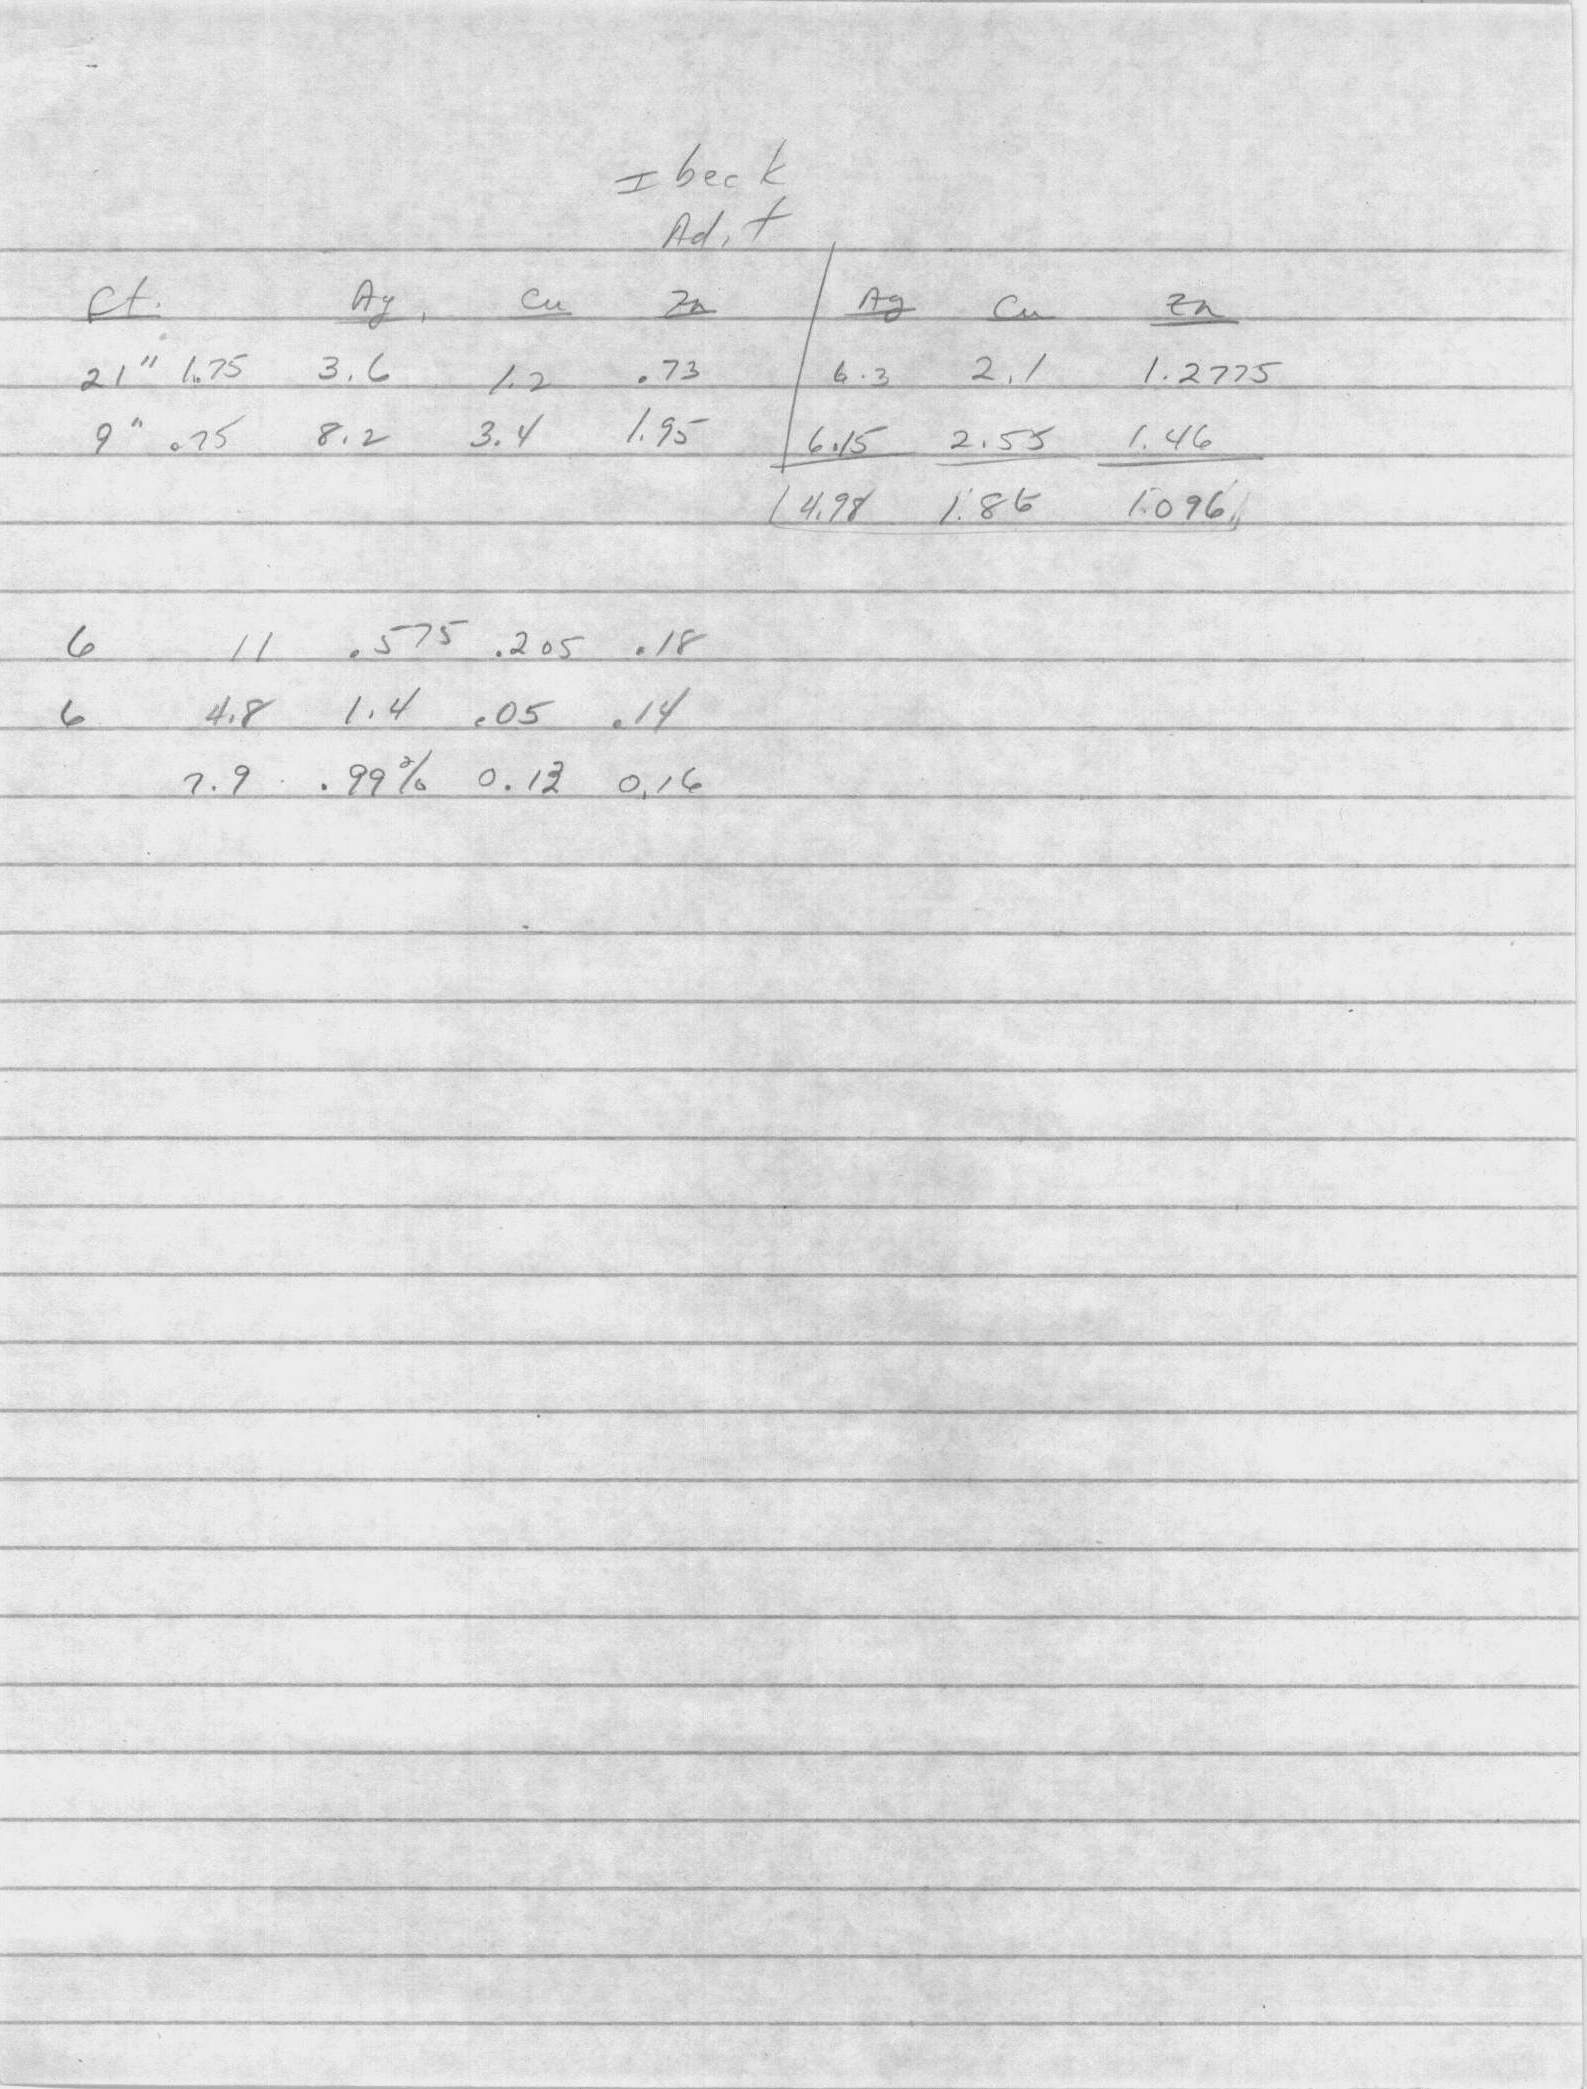 Ibeck
Adit
ft. Ag. Cu Zn Ag Cu Zn
21" 1.75 3.6 1.2 .73 6.3 2.1 1.2775
9" .75 8.2 3.4 1.95 6.15 2.55 1.46
4.98 1.86 1.096
6 11 .575 .205 .18
6 4.8 1.4 .05 .14
7.9 .99% 0.13 0.16